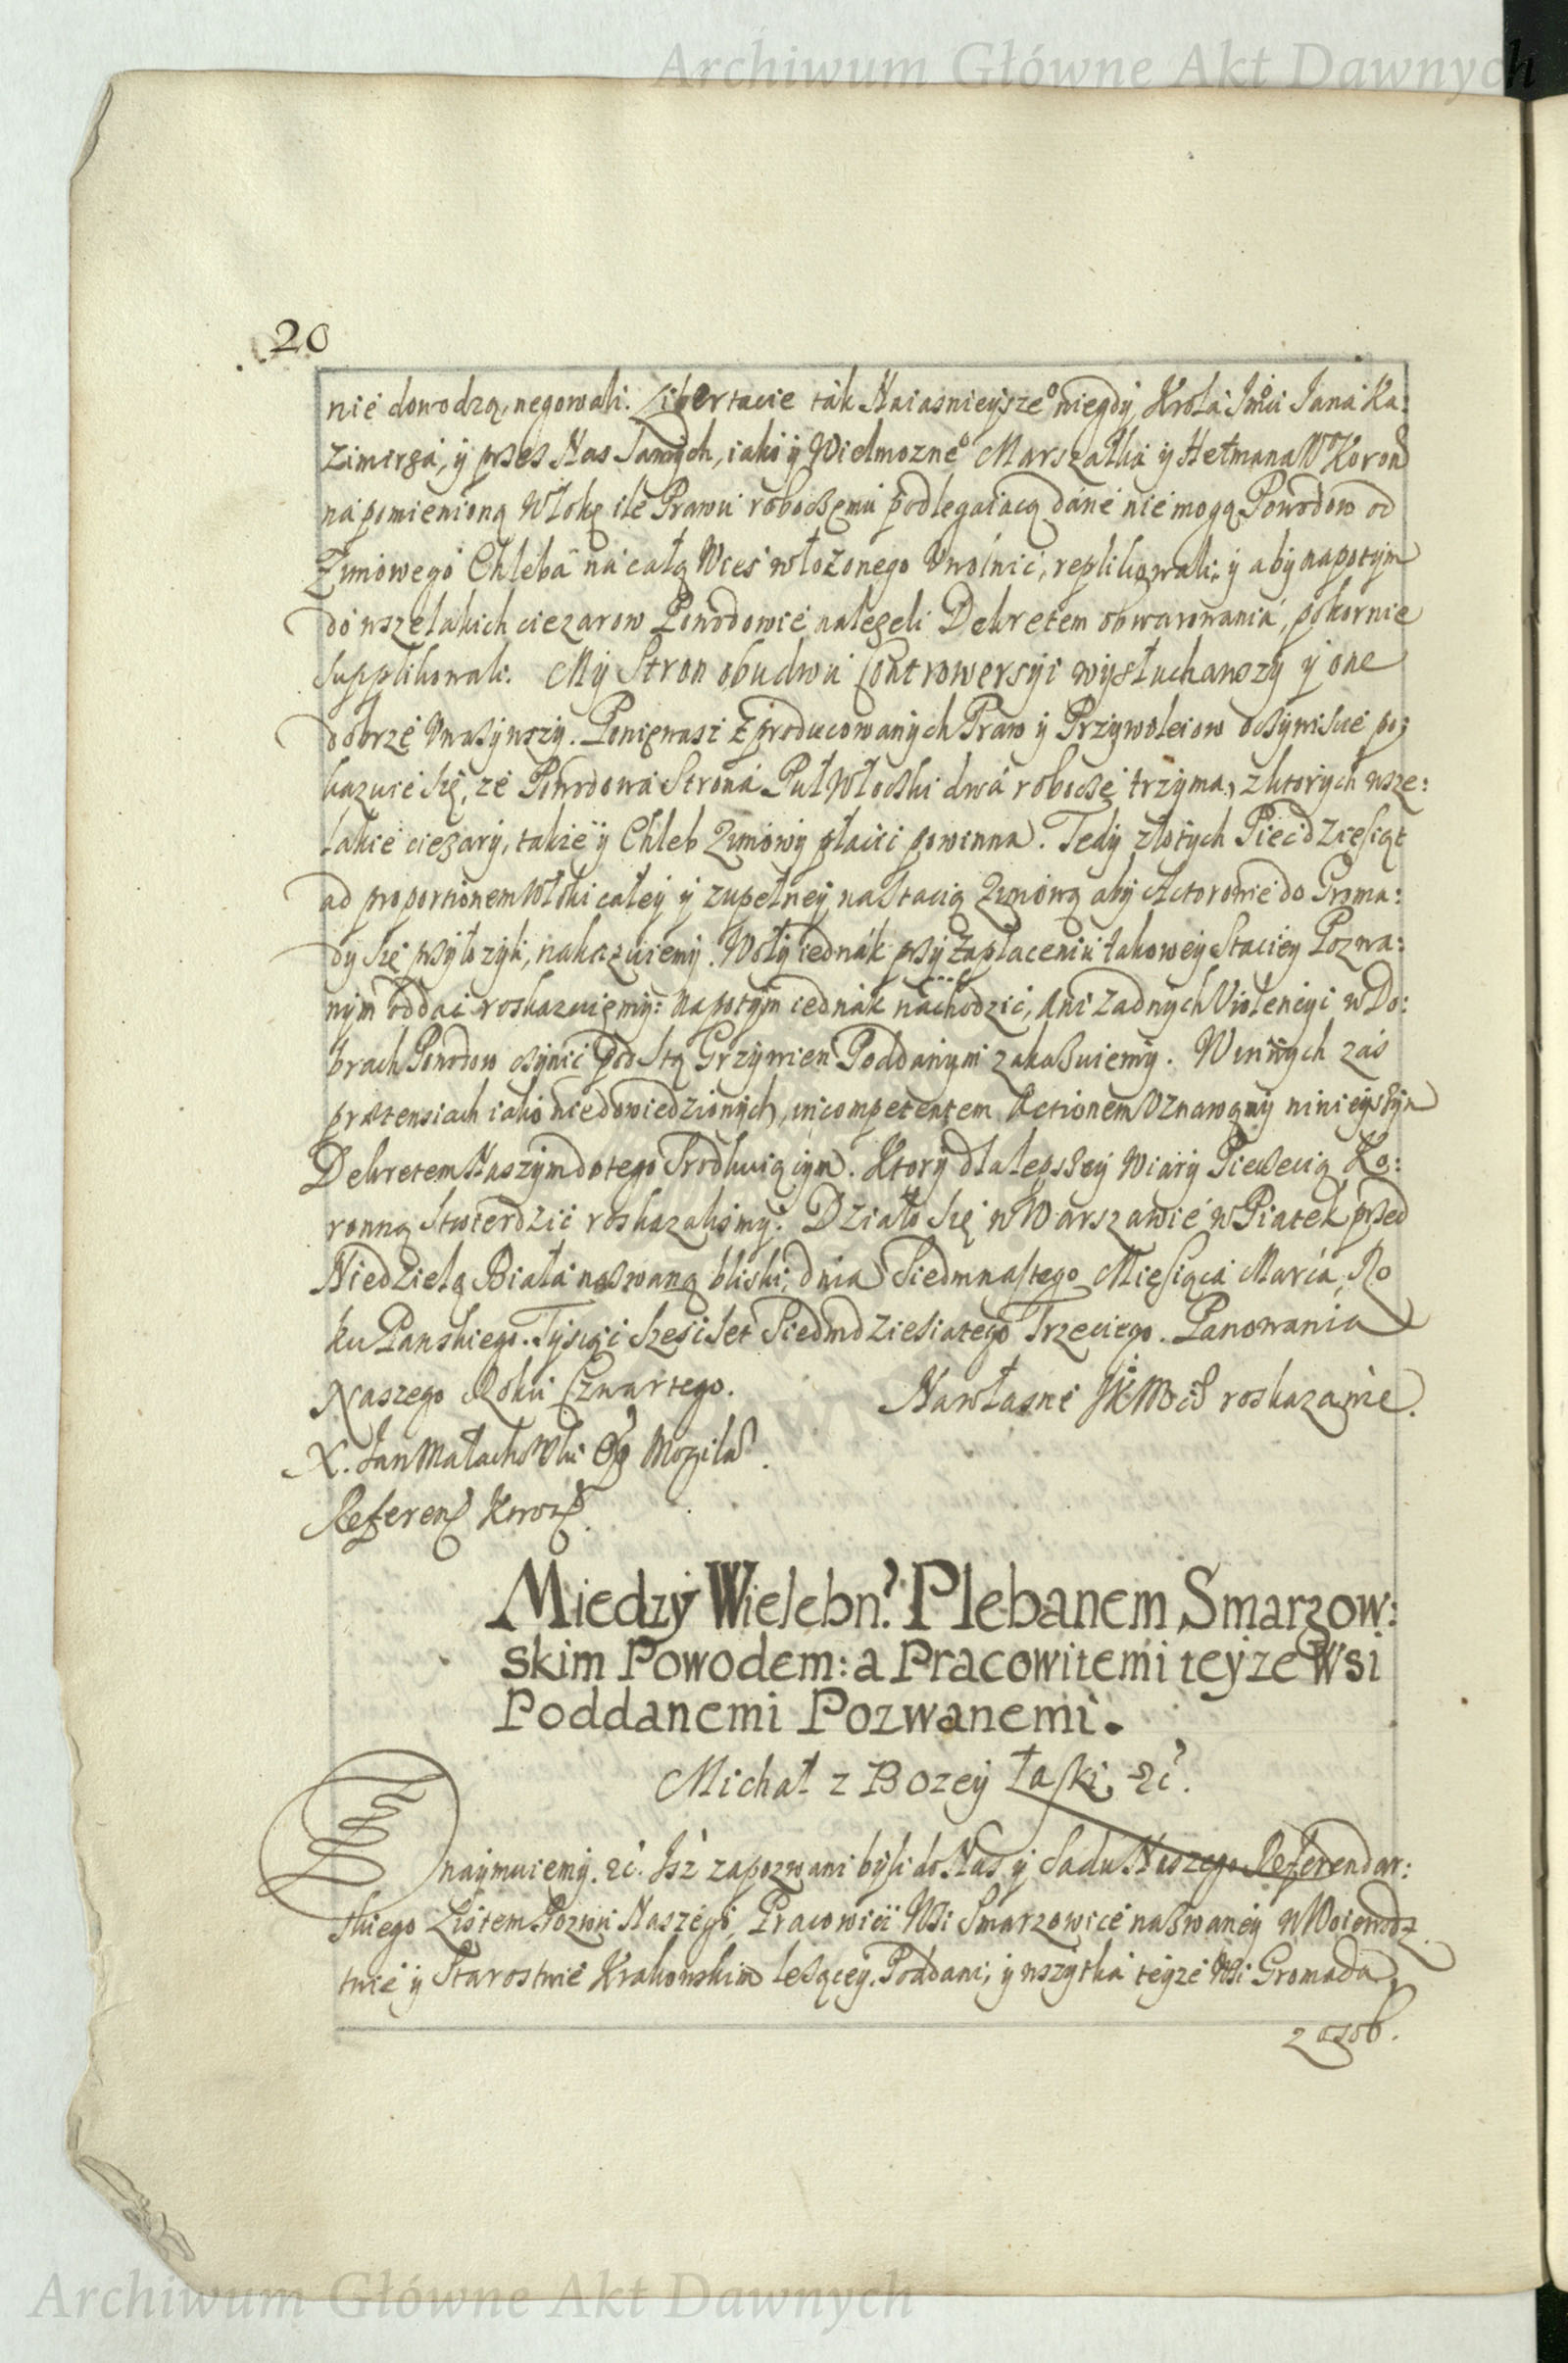 Archiwum Główne Akt Dawnych
20
nie dowodzą, negowali. Libertacie tak Naiasnieysze° niegdy Krola Jmci Jana Ka:
zimirza, y przes Nas Samych, iako y Wielmozne° Marszałka y Hetmana W Koron
na pomienioną Włokę ile Prawu roboczemu podlegaiącą dane nie mogą Powodow od
Zimowego Chleba na całą Wies włozonego Uwolnic, replikowali, y aby napotym
do wszelakich ciezarow Powodowie nalezeli Dekretem obwarowania, pokornie
supplikowali. My Stron obudwu Controwersyi wysłuchawszy y one
dobrze Uwazywszy. Poniewasz z producowanych Praw y Przywoleiow oczywiscie po:
kazuie się, ze Powodowa Strona Puł Włoczki dwa robocze trzyma, z ktorych wsze:
lakie ciezary, takze y Chleb Zimowy płacic powinna. Tedy złotych Piecdziesiąt
ad proportionem Włoki całey y zupełney na Stacią Zimową aby Actorowie do Groma:
dy się przyłozyli, nakazuiemy. Woły iednak przy zapłaceniu takowey Staciey Pozwa:
nym oddac roskazuiemy: napotym iednak nachodzic, Ani Zadnych Violencyi w Do:
brach Powodow czynic pod Stą Grzywien Poddanym zakazuiemy. W innych zas
prætensiach iako niedowiedzionych, incompetentem Actionem Uznawamy ninieyszym
Dekretem Naszym do tego Srodkuiącym. Ktory dla lepszey Wiary Pieczecią Ko:
ronną stwierdzic roskazalismy. Działo się w Warszawie w Piatek przed
Niedzielą Biała nazwaną bliski, dnia Siedmnastego Miesiąca Marca, Ro
ku Panskiego. Tysiąc Szescset Siedmdziesiatego Trzeciego. Panowania
Naszego Roku Czwartego. Nawłasne JKMci roskazanie.
X. Jan Małachowski Mogils.
Referen Koron
Miedzy Wielebn. Plebanem Smarzow:
skim Powodem: a Pracowitemi teyze Wsi
Poddanemi Pozwanemi.
Michał z Bozey łaski, &c.
Oznaymuiemy. &c. Isz zapozwani byli do Nas, y Sadu Naszego Referendar:
skiego Listem Pozwu Naszego, Pracowici Wsi Smarzowice nazwaney w Woiewodz
twie y Starostwie Krakowskim lezącey. Poddani, y wszytka teyze Wsi Gromada
z osob.
Archiwum Główne Akt Dawnych